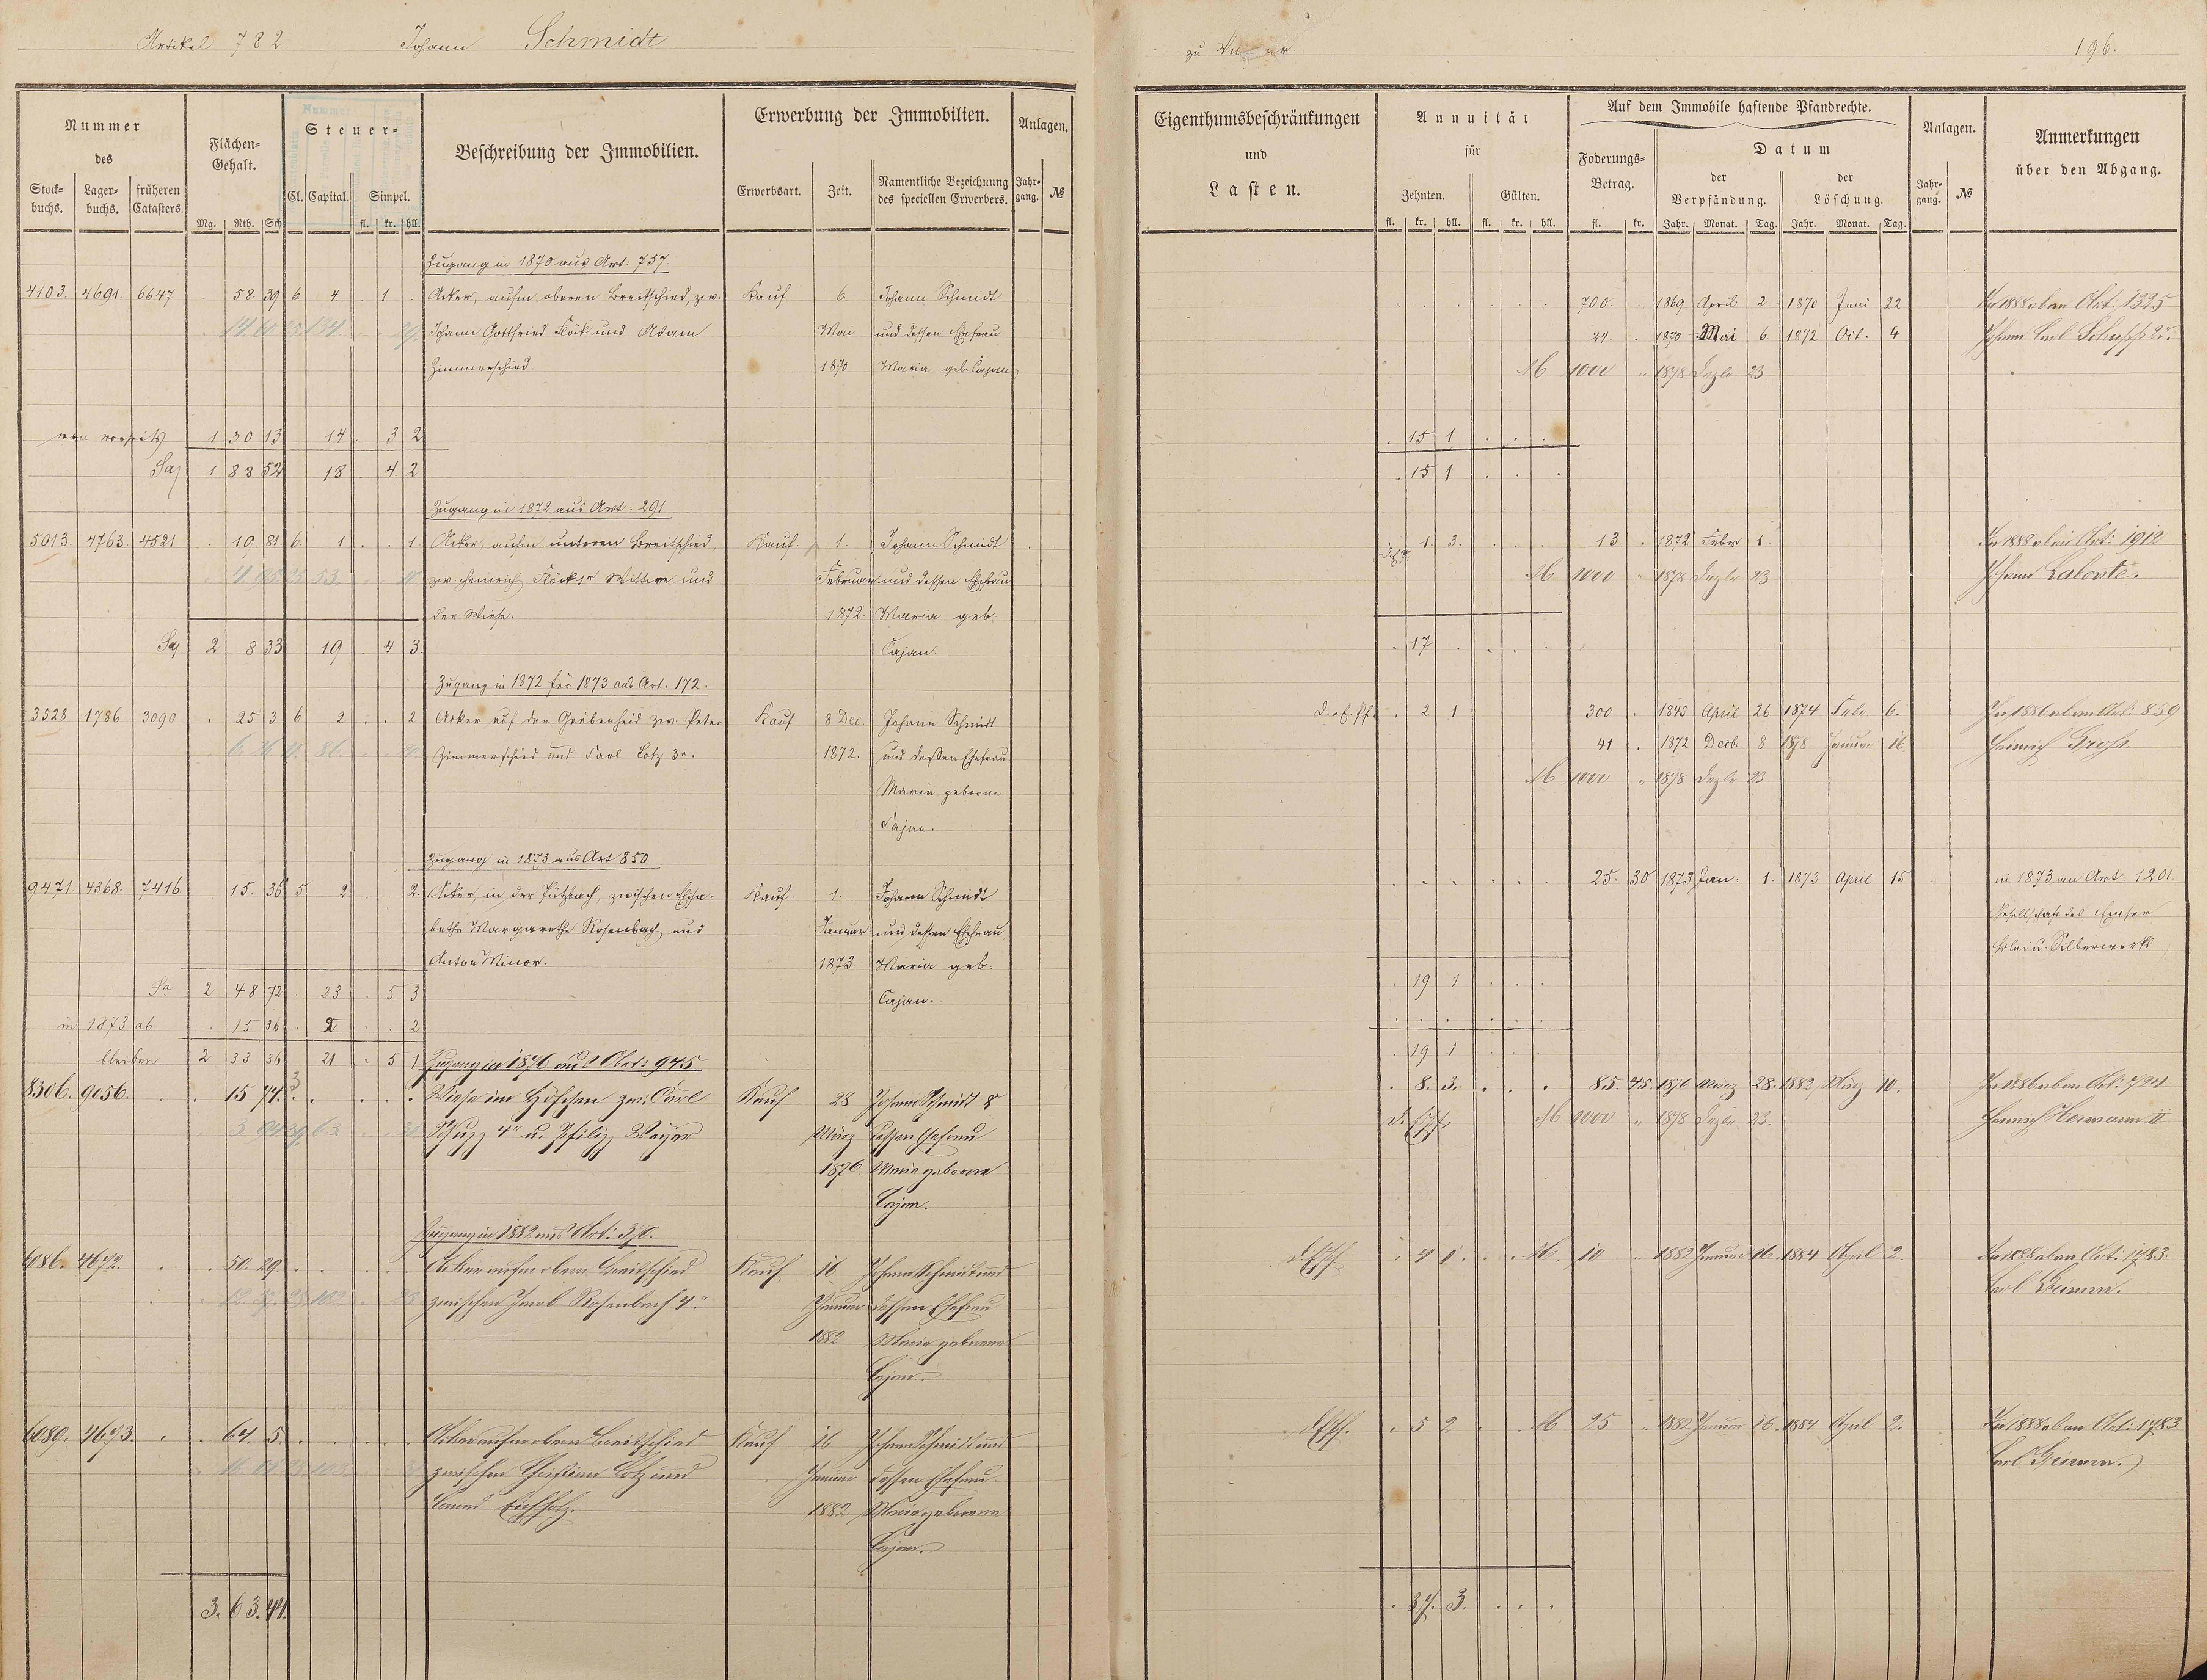 Artikel 782. Johann Schmidt
zu 196.
Nummer des
Stock-buchs. Lager-buchs. früheren Catasters.
Flächen-Gehalt.
Mg. Rth. Sch
Steuer-
Cl. Capital. Simpel.
fl. kr. hll.
Beschreibung der Immobilien.
Erwerbung der Immobilien.
Erwerbsart. Zeit. Namentliche Bezeichnung des speciellen Erwerbers.
Anlagen.
Jahr-gang. №
Eigenthumsbeschränkungen und Lasten.
Annuität für
Zehnten. Gülten.
fl. kr. hll. fl. kr. hll.
Auf dem Immobile haftende Pfandrechte.
Foderungs-Betrag.
fl. kr.
Datum
der Verpfändung. der Löschung.
Jahr. Monat. Tag. Jahr. Monat. Tag.
Anlagen.
Jahr-gang. №
Anmerkungen über den Abgang.
Zugang in 1870 aus Art: 757.
4103. 4691. 6647 . 58. 39 6 4 . 1 . Acker, aufm oberen Breitschied, zw. Kauf 6. Johann Schmidt 700. 1869. April 2 1870 Juni 22 In 1888 ab an Art: 1325
Johann Gottfried Flöck und Adam Mai und dessen Ehefrau 24. . 1870 Mai 6 1872 Oct. 4 Johann Carl
Zimmerschied. 1870 Maria geb. Cajan M 1000 " 1878 Dezbr 23
von vorseits 1 30 13 14 . 3 2 . 15 1 . . .
Sa 1 83 52 18 . 4 2 . 15 1 . . .
Zugang in 1872 aus Art: 291
5013. 4763. 4521 . 19. 81 6. 1 . . 1 Acker, aufm unteren Breitschied, Kauf. 1. Johann Schmidt . 1. 3. 13. . 1872 Febr 1. In 1888 ab an Art: 1912
zw. Heinrich Flöck Wittwe und Februar und dessen Ehefrau M 1000 " 1878 Dezbr 23 Johann Lalonte.
der Wiese. 1872. Maria geb.
Sa 2 8 33 19 . 4 3. Cajan. . 17 . . . .
Zugang in 1872 für 1873 aus Art. 172.
3528 1786 3090 . 25 3 6 2 . . 2 Acker auf der Gräbenheid zw. Peter Kauf 8 Dec. Johann Schmidt . 2 1 300 . 1845 April 26 1874 Febr. 6. In 1886 ab an Art: 859
Zimmerschied und Carl Lotz 3r. 1872. und dessen Ehefrau 41 . 1872 Decb. 8 1878 Januar 16. Heinrich Groß
Maria geborne M 1000 " 1878 Dezbr 23
Cajan.
Zugang in 1873 aus Art 850
9471. 4368. 7416 15. 36 5 2 . . 2. Acker, in der Pützbach, zwischen Elisa- Kauf. 1. Johann Schmidt 25. 30 1873 Jan: 1. 1873 April 15 in 1873 an Art: 1201
betha Margaretha Rosenbach und Januar und dessen Ehefrau Gesellschaft des Emser
Anton Minor. 1873. Maria geb: Blei u. Silberwerks
Sa 2 48 72 . 23 . 5 3 Cajan. . 19 1 . . .
in 1873 ab . 15 36 . 2 . . 2
bleiben 2 33 36 21 . 5 1 Zugang in 1876 aus Art: 945 . 19 1 . . .
8306. 9056. . . 15 74. 3. Wiese im Höfchen zw: Carl Kauf 28 Johann Schmidt & . 8. 3. . . . 85. 45. 1876 März 28. 1882 März 10. In 1886 ab an Art: 724
4r u. Philipp Weyer März dessen Ehefrau M 1000 " 1878 Dezbr. 23. Heinrich Hermann II
1876. Maria geborene
Cajan.
Zugang in 1882 aus Art: 370.
6086. 4672. . . 50. 29. Acker aufm obern Breitschied Kauf 16 Johann Schmidt und . 4 1 . . M. 10 " 1882 Januar 16 1884 April 2. In 1888 ab an Art: 1783.
zwischen Jacob Rosenbach 4r. Januar dessen Ehefrau Carl
1882 Maria geborene
Cajan.
6089. 4673. . . 64. 5. Acker aufm obern Breitschied Kauf 16 Johann Schmidt und . 5 2 . . M 25 " 1882 Januar 16. 1884 April 2. In 1888 ab an Art: 1783
zwischen Christian Lotz und Januar dessen Ehefrau Carl
Eichholz. 1882 Maria geborene
Cajan.
3. 63. 44. . 37. 3. . . .